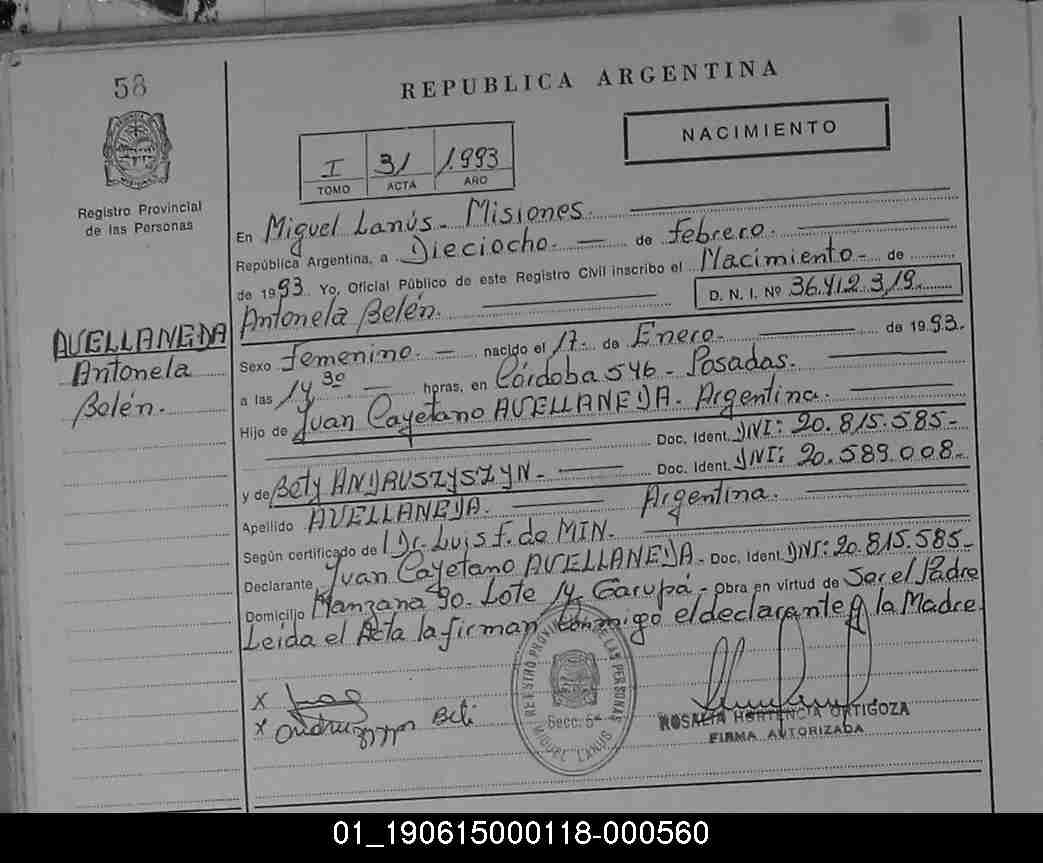 58
REPUBLICA ARGENTINA
NACIMIENTO
I 31 1.993
TOMO ACTA AÑO
Registro Provincial
de las Personas
En Miguel Lanús - Misiones.
República Argentina, a Dieciocho. — de febrero.
de 1993. Yo, Oficial Público de este Registro Civil inscribo el Nacimiento - de
Antonela Belén. D. N. I. Nº 36.412.319.
AVELLANEDA
Antonela
Belén.
Sexo femenino. — nacido el 17 - de Enero. de 1993.
a las 14 30 — horas, en Córdoba 546 - Posadas.
Hijo de Juan Cayetano AVELLANEDA. Argentina.
Doc. Ident. DNI: 20.815.585-
y de Bety ANDRUSZYSZYN. — Doc. Ident. DNI: 20.589.008-
Apellido AVELLANEDA. Argentina.
Según certificado de Dr. Luis F. de MIN.
Declarante Juan Cayetano AVELLANEDA. Doc. Ident. DNI: 20.815.585-
Domicilio Manzana 90. Lote 14. Garupá - Obra en virtud de Ser el Padre
Leída el Acta la firman conmigo el declarante y la Madre.
X
X Beti
REGISTRO PROVINCIAL DE LAS PERSONAS
Secc. 5ª
MIGUEL LANUS
ROSALIA HORTENCIA ORTIGOZA
FIRMA AUTORIZADA
01_190615000118-000560